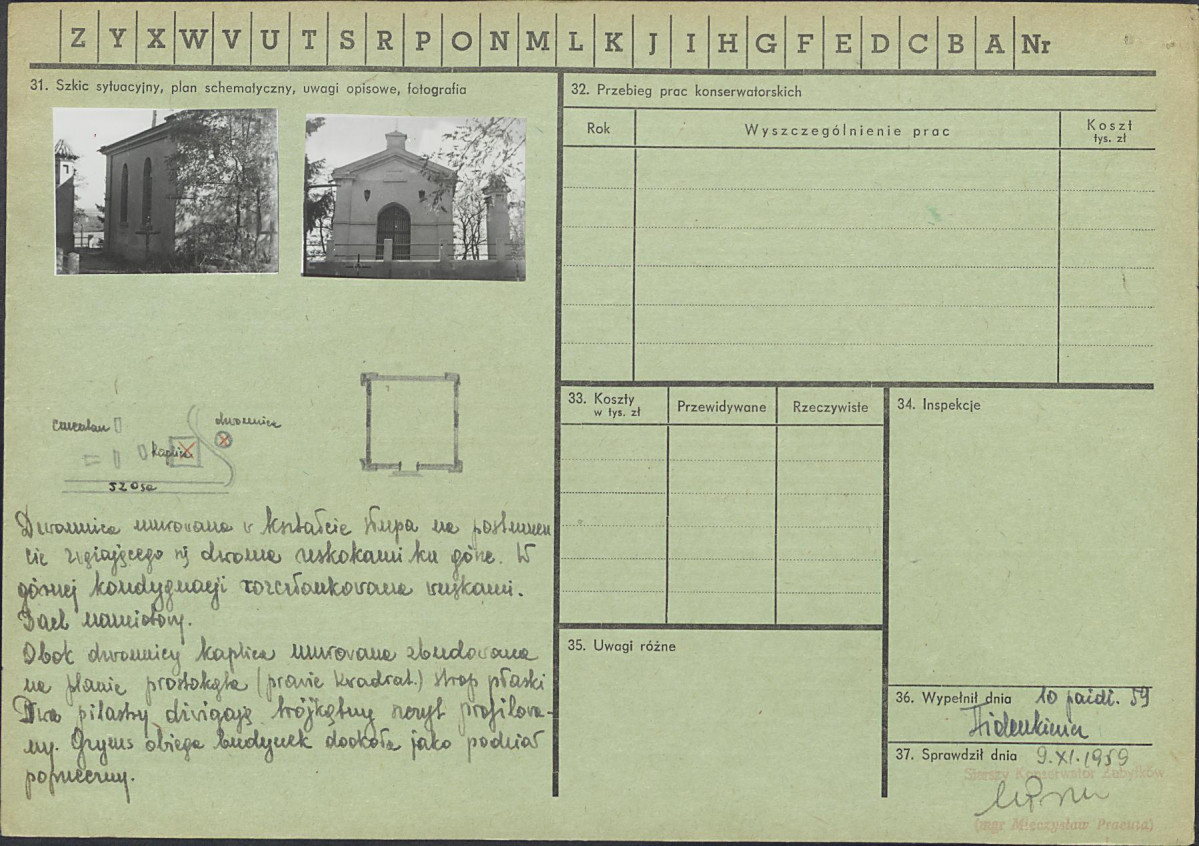 Z Y X W V U T S R P O N M L K J I H G F E D C B A Nr
31. Szkic sytuacyjny, plan schematyczny, uwagi opisowe, fotografia
cmentarz
dzwonnica
kaplica
szosa
Dzwonnica murowana w kształcie słupa na postumen
cie zwężającego się dwoma uskokami ku górze. W
górnej kondygnacji rozczłonkowana wnękami.
Dach namiotowy.
Obok dzwonnicy kaplica murowana zbudowana
na planie prostokąta (prawie kwadrat.) strop płaski
Dwa pilastry dźwigają trójkątny szczyt profilowa-
ny. Gzyms obiega budynek dookoła jako podział
poprzeczny.
32. Przebieg prac konserwatorskich
Rok
Wyszczególnienie prac
Koszt
tys. zł
33. Koszty
w tys. zł
Przewidywane
Rzeczywiste
34. Inspekcje
35. Uwagi różne
36. Wypełnił dnia 10 paźdz. 59
37. Sprawdził dnia 9.XI.1959
Starszy Konserwator Zabytków
(mgr Mieczysław Pracuta)